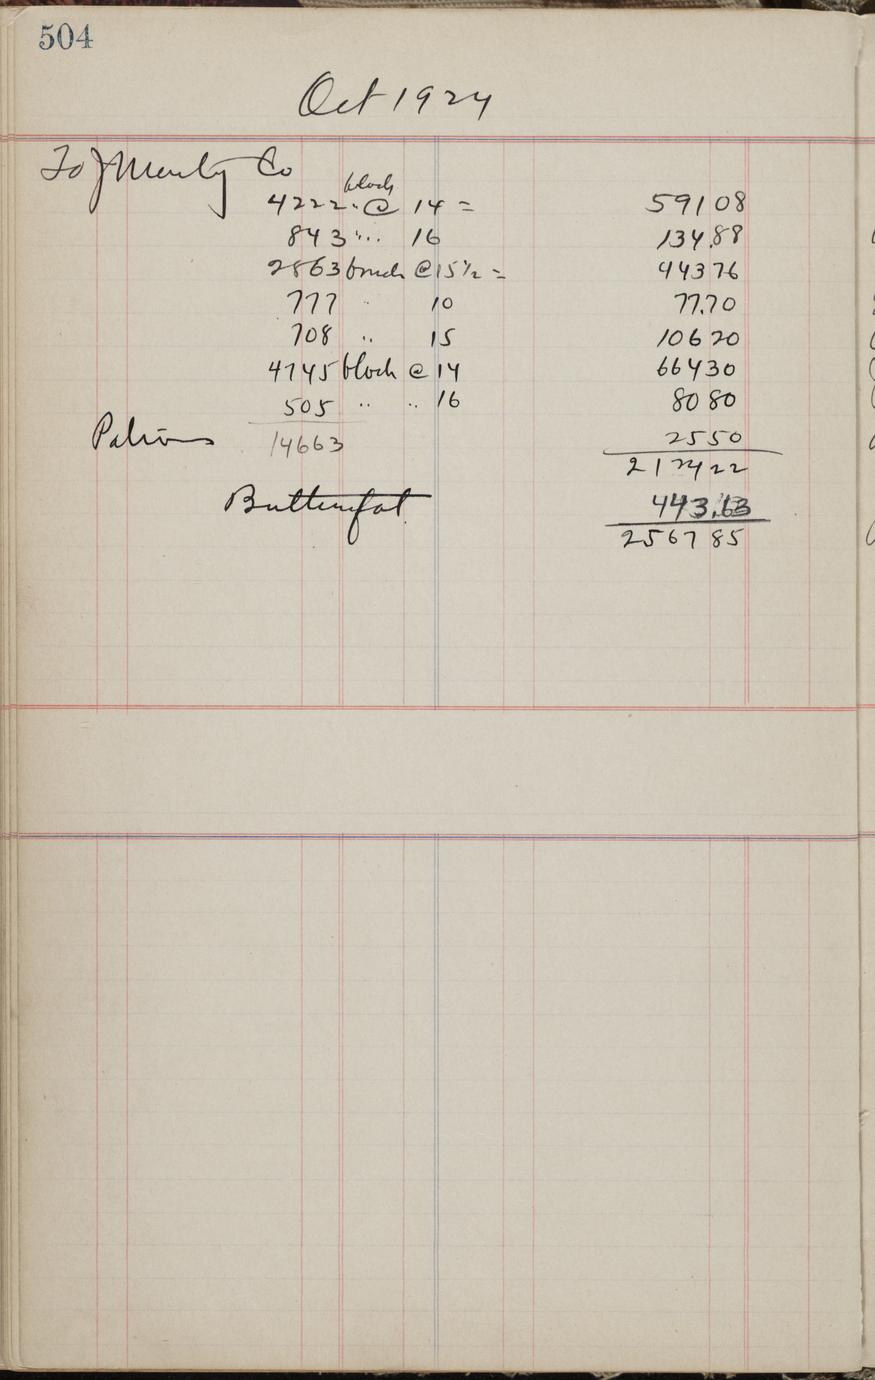 504
Oct 1924
To J Co
block
4222 " @ 14 = 591 08
843 " " 16 134.88
2863 @ 15 1/2 = 443 76
777 " 10 77.70
708 " 15 106 20
4745 block @ 14 664 30
505 " " 16 80 80
Patrons 14663 25 50
2124 22
Butterfat 443.63
2567 85